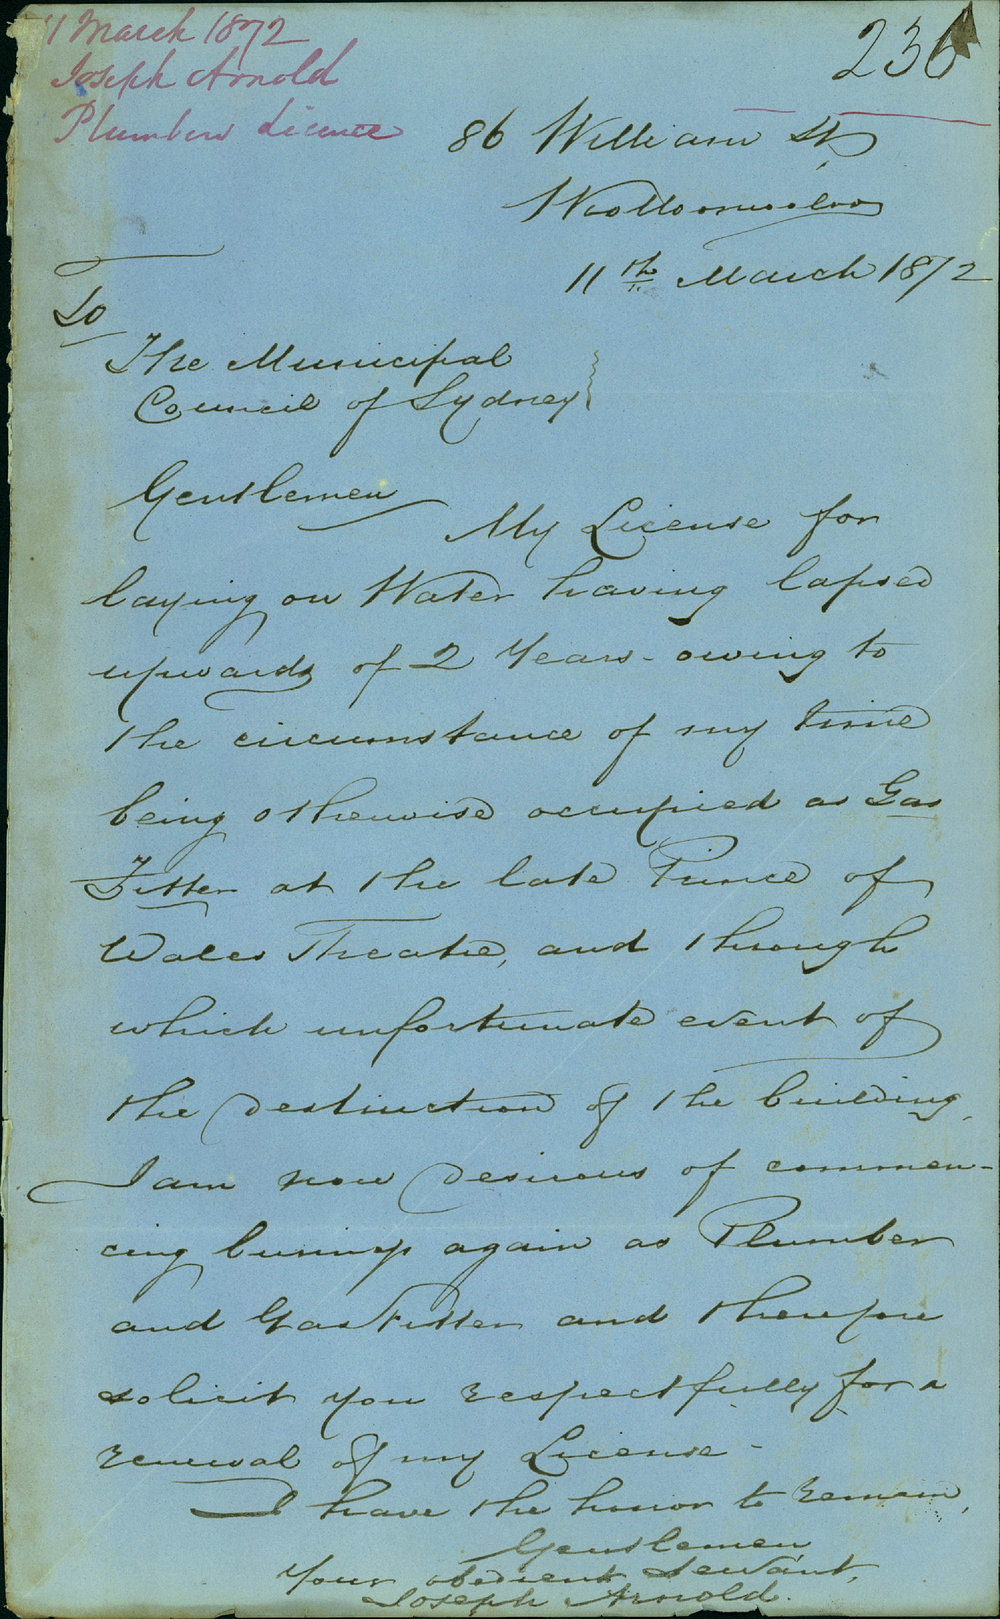 11 March 1872
Joseph Arnold
Plumbers Licence
236
86 William St
Woolloomooloo
11th March 1872
To
The Municipal
Council of Sydney
Gentlemen
My License for
laying on Water having lapsed
upwards of 2 Years - owing to
the circumstance of my time
being otherwise occupied as Gas
Fitter at the late Prince of
Wales Theatre, and through
which unfortunate event of
the destruction of the building,
I am now desirous of commen-
cing business again as Plumber
and Gas Fitter and therefore
solicit you respectfully for a
renewal of my License -
I have the honor to remain,
Gentlemen,
Your obedient Servant,
Joseph Arnold.